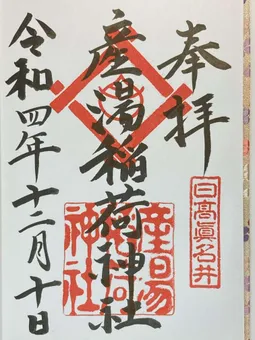 奉拝
日高眞名井
産湯稲荷神社
産湯稲荷神社
令和四年十二月十日